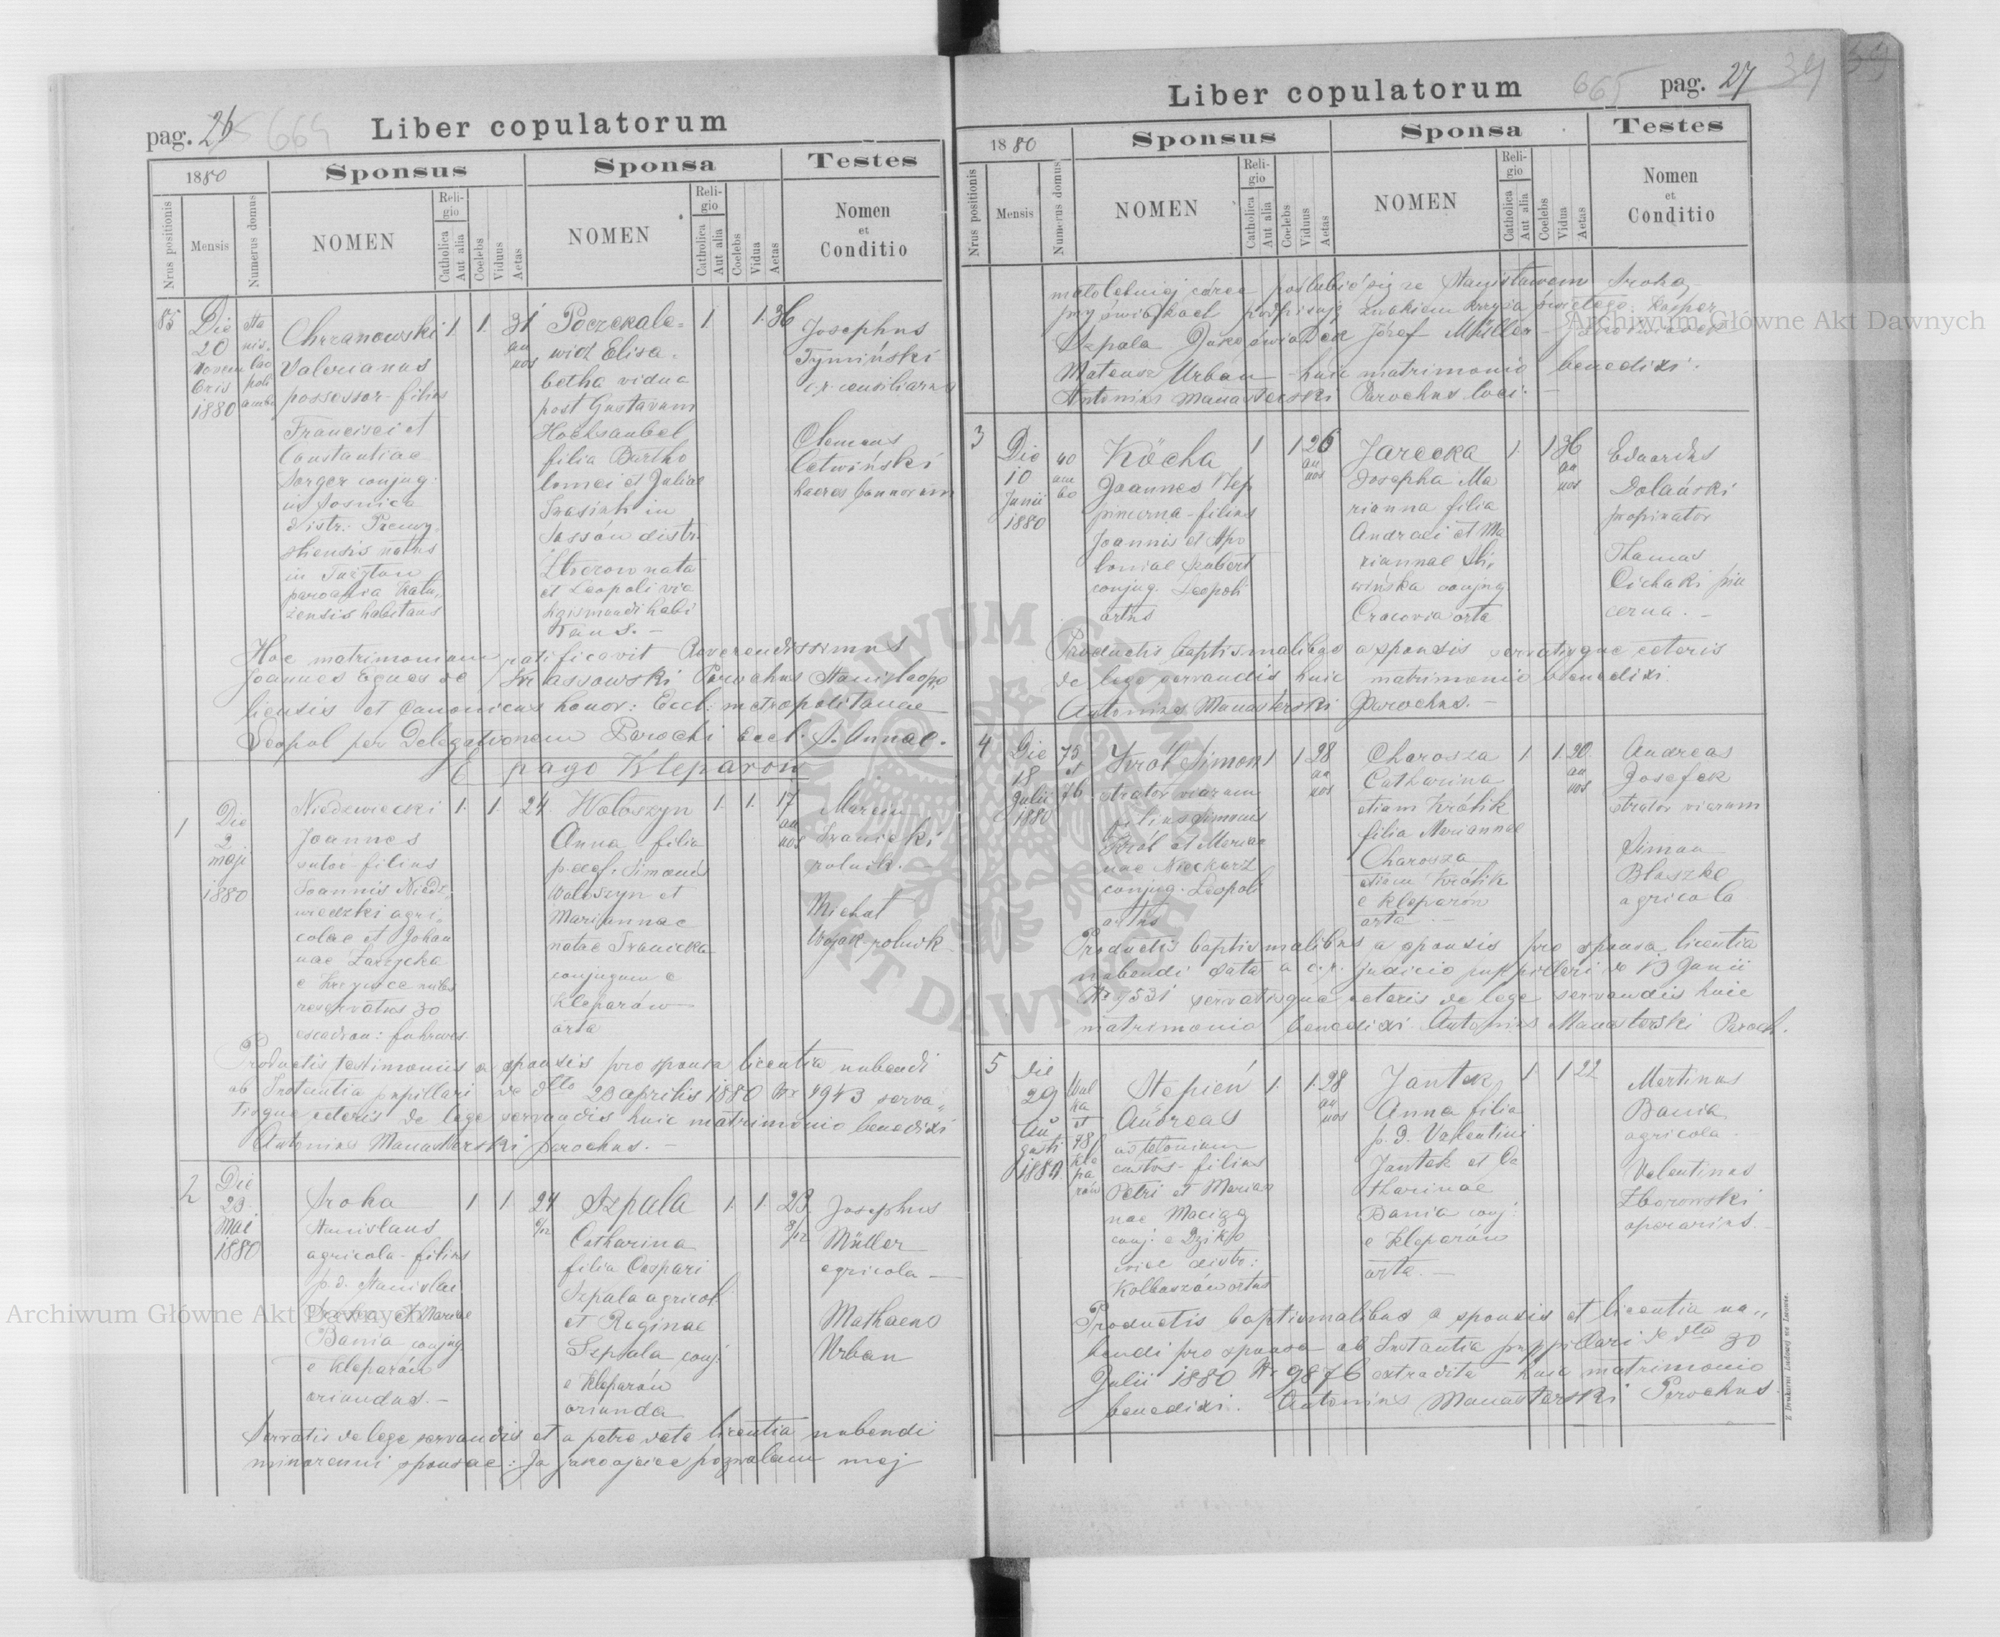 pag. 26
664
Liber copulatorum
1880
Sponsus
Sponsa
Testes
Nrus positionis
Mensis
Numerus domus
NOMEN
Religio
Catholica
Aut alia
Coelebs
Viduus
Aetas
NOMEN
Religio
Catholica
Aut alia
Coelebs
Vidua
Aetas
Nomen
et
Conditio
85
Die
20
1880
Chrzanowski
Valerianus
possessor filius
Francisci et
Constantiae
Serger conjug:
in Sosnica
distr:
natus
in
parochia
habitans
1
1
31
annos
Poczekale=
wicz Elisa=
betha vidua
post Gustavum
filia Bartho
lomei et Juliae
in
Sassów distr.
nata
et Leopoli via
habi
tans. –
1
1
36
Josephus
Tymiński
c.r. consiliarius
Clemens
Cetwiński
haeres bonorum
Hoc matrimonium ratificavit Reverendissimus
Joannes Eques de Parochus Stanisleopo
liensis et Canonicus honor: Eccl: metropolitanae
Leopol per Delegationem Parochi Eccl. S. Annae.
E pago Kleparow
1
Die
2
maji
1880
Niedzwiecki
Joannes
sutor filius
Joannis Niedz=
wiedzki agri=
colae et Johan
nae
e
reservatus 30
escadron:
1
1
24
Wołoszyn
Anna filia
p. def. Simonis
Wołoszyn et
Mariannae
natae Iwanicka
conjugum e
Kleparów
orta
1
1
17
annos
Marcin
Iwanicki
rolnik. –
Michał
Wojak rolnik –
Productis testimoniis a sponsis pro sponsa licentia nubendi
ab Instantia pupillari de dtto 29 aprilis 1880 Nr 4943 serva=
tisque ceteris de lege servandis huic matrimonio benedixi
Antonius Manasterski parochus. –
2
Die
23
Mai
1880
Sroka
Stanislaus
agricola filius
p. d. Stanislai
Sroka et Mariae
Bania conjug.
e Kleparów
oriundus. –
1
1
24
6/12
Szpala
Catharina
filia Caspari
Szpala agricol.
et Reginae
Szpala conj:
e Kleparów
oriunda
1
1
23
8/12
Josephus
Müller
agricola –
Mathaeus
Urban
Servatis de lege servandis et a patre data licentia nubendi
minorenni sponsae: Ja jako ojciec pozwalam mej
665
pag. 27
34
Liber copulatorum
1880
Sponsus
Sponsa
Testes
Nrus positionis
Mensis
Numerus domus
NOMEN
Religio
Catholica
Aut alia
Coelebs
Viduus
Aetas
NOMEN
Religio
Catholica
Aut alia
Coelebs
Vidua
Aetas
Nomen
et
Conditio
małoletniej córce poślubić się ze Stanisławem Sroką
przy świadkach podpisuję znakiem krzyża świętego: Kasper
Szpala Jako świadek Józef Müller –
Mateusz Urban – huic matrimonio benedixi.
Antonius Manasterski Parochus loci. –
3
Die
10
Junii
1880
40
ambo
Köcha
Joannes Nep
pincerna – filius
Joannis et Apo
loniae Szubert
conjug. Leopoli
ortus
1
1
26
annos
Jarecka
Josepha Ma
rianna filia
Andreae et Ma
riannae Śli
wińska conjug
Cracovia orta
1
1
36
annos
Eduardus
Dolański
propinator
Thomas
Cichaki pin
cerna. –
Productis baptismalibus a sponsis servatisque ceteris
de lege servandis huic matrimonio benedixi
Antonius Manasterski Parochus. –
4
Die
18
Julii
1880
75
et
76
Król Simon
strator viarum
filius Simonis
Król et Marian
nae Nieckarz
conjug. Leopoli
ortus
1
1
28
annos
Charosza
Catharina
etiam Królik
filia Mariannae
Charosza
etiam Królik
e Kleparow
orta –
1
1
20
annos
Andreas
Josefek
strator viarum
Simon
Błaszke
agricola
Productis baptismalibus a sponsis pro sponsa licentia
nubendi data a c.r. judicio puppillari de 13 Junii
Nr 7531 servatisque ceteris de lege servandis huic
matrimonio benedixi Antonius Manasterski Paroch.
5
Die
29
Au
gusti
1880
et
48
Kle
pa
rów
Stepień
Andreas
custos – filius
Petri et Marian
nae Maciąg
conj: e Dziko
wiec distr:
Kolbuszów ortus
1
1
28
annos
Jantek
Anna filia
p. d. Valentini
Jantek et Ca
tharinae
Bania conj:
e Kleparów
orta. –
1
1
22
Martinus
Bania
agricola
Valentinus
Zborowski
operarius. –
Productis baptismalibus a sponsis et licentia nu=
bendi pro sponsa ab Instantia puppillari de dtto 30
Julii 1880 Nr 9876 extradita huic matrimonio
benedixi. Antonius Manasterski Parochus
Z Drukarni Ludowej we Lwowie.
Archiwum Główne Akt Dawnych
Archiwum Główne Akt Dawnych
ARCHIWUM GŁÓWNE AKT DAWNYCH